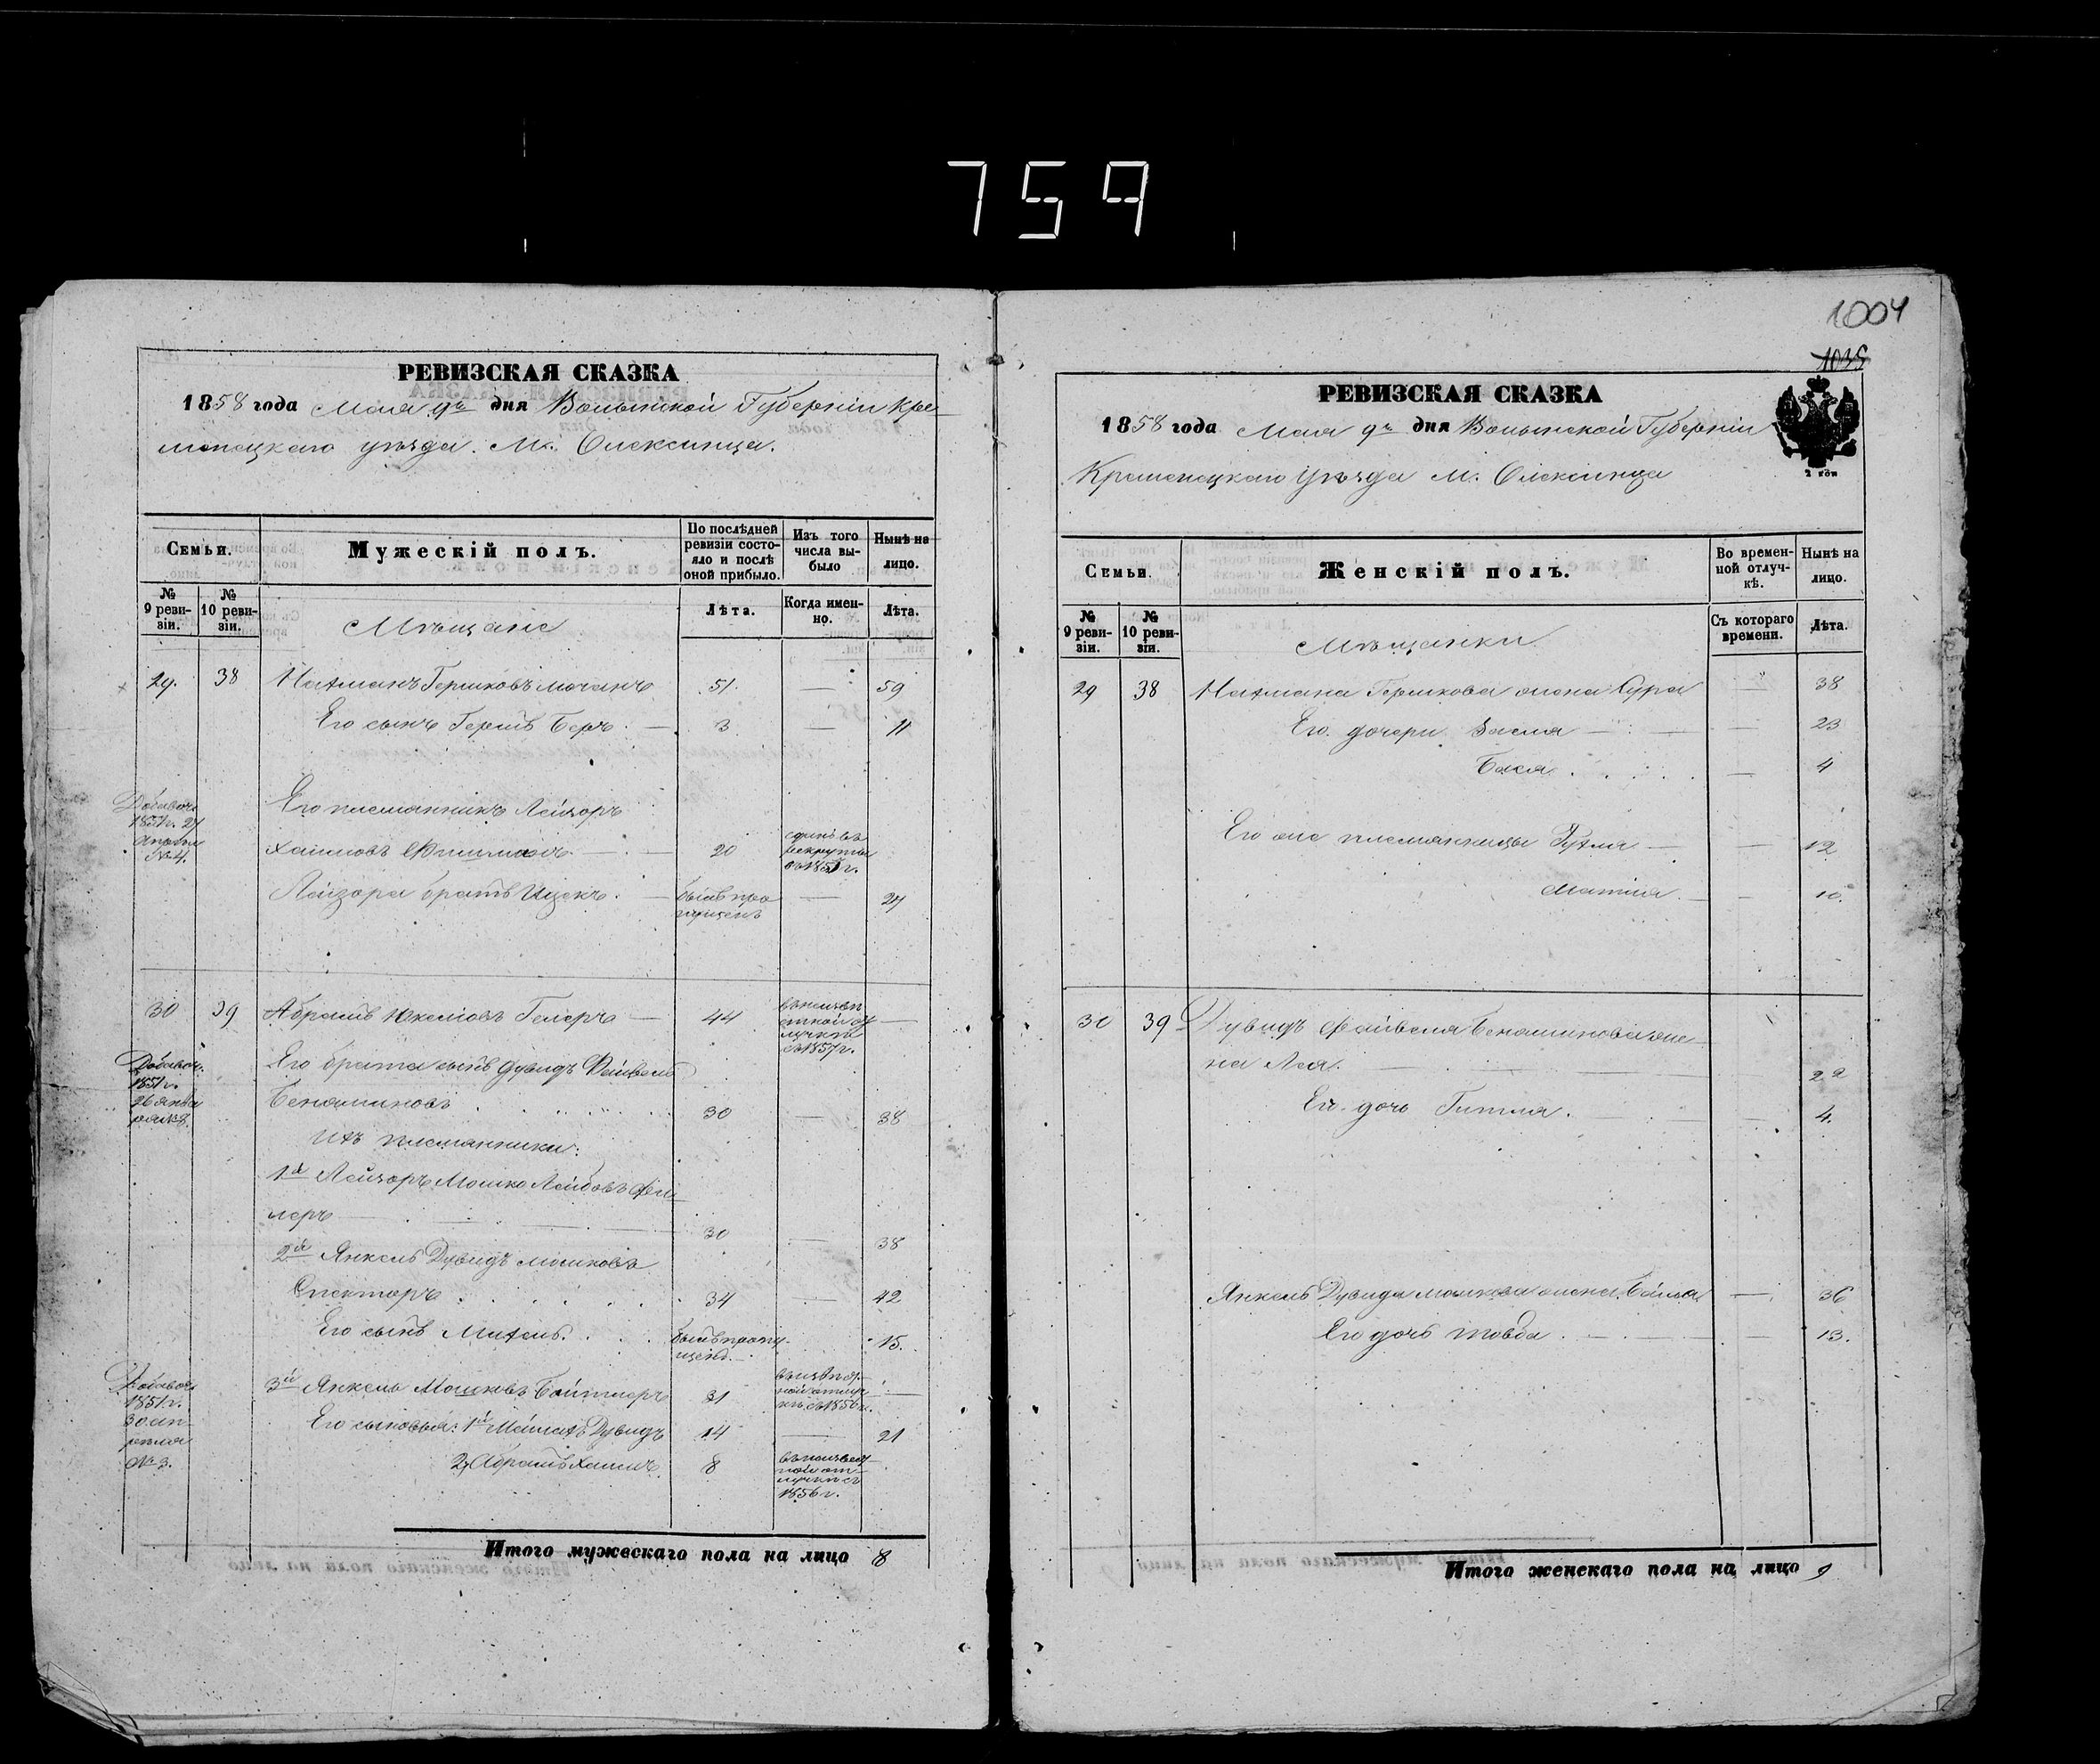 759
РЕВИЗСКАЯ СКАЗКА
1858 года Мая 9го дня Волынской Губерніи Кре
менецкаго уѣзда. М. Олексинца.
Семьи.
Мужескій полъ.
По послѣдней ревизіи состояло и послѣ оной прибыло.
Изъ того числа выбыло
Нынѣ на лицо.
№ 9 ревизіи.
№ 10 ревизіи.
Мѣщане
Лѣта.
Когда именно.
Лѣта.
29. 38 Нахманъ Гершковъ 51. — 59
Его сынъ Гершъ Беръ. — 3 — 11
Его племянникъ Лейзоръ
Добавоч. 1851 г. 27 Апрѣля № 4.
Хаимовъ Фишманъ — 20 сданъ въ рекруты въ 1851 г.
Лейзора братъ Ицекъ. — былъ пропущенъ — 24
30 39 Абрамъ Юкелювъ Гелеръ — 44 въ неизвѣстной отлучкѣ съ 1857 г. —
Добавоч. 1851 г. 26
Его брата сынъ Дувидъ Файвель
Беняминовъ 30 — 38
Ихъ племянники:
1й Лейзоръ Мошко Лейбовъ
леръ 30 — 38
2й Янкель Дувидъ Мошковъ
Спекторъ 34 — 42
Его сынъ Михель. былъ пропущенъ. — 15.
Добавоч. 1851 г. 30 апрѣля № 3.
3й Янкель Мошковъ 31 въ неизвѣстной отлучкѣ съ 1856 г. —
Его сыновья: 1й Дувидъ 14 — 21
2й Абрамъ Хаимъ 8 въ неизвѣстной отлучкѣ съ 1856 г.
Итого мужескаго пола на лицо 8
1004
1035
РЕВИЗСКАЯ СКАЗКА
1858 года Мая 9го дня Волынской Губерніи
Кременецкаго Уѣзда М. Олексинца
Семьи.
Женскій полъ.
Во временной отлучкѣ.
Нынѣ на лицо.
№ 9 ревизіи.
№ 10 ревизіи.
Мѣщанки
Съ котораго времени.
Лѣта.
29 38 Нахмана Гершкова жена Сура — 38
Его дочери Засля — 23
Бася — 4
Его же племянницы — 12
— 10.
30 39 Дувидъ Файвеля Беняминова же
на Лея. 22
Его дочь Гитля. — 4.
Янкель Дувида Мошкова жена Бейла — 36
Его дочь Товба — 13.
Итого женскаго пола на лицо 9